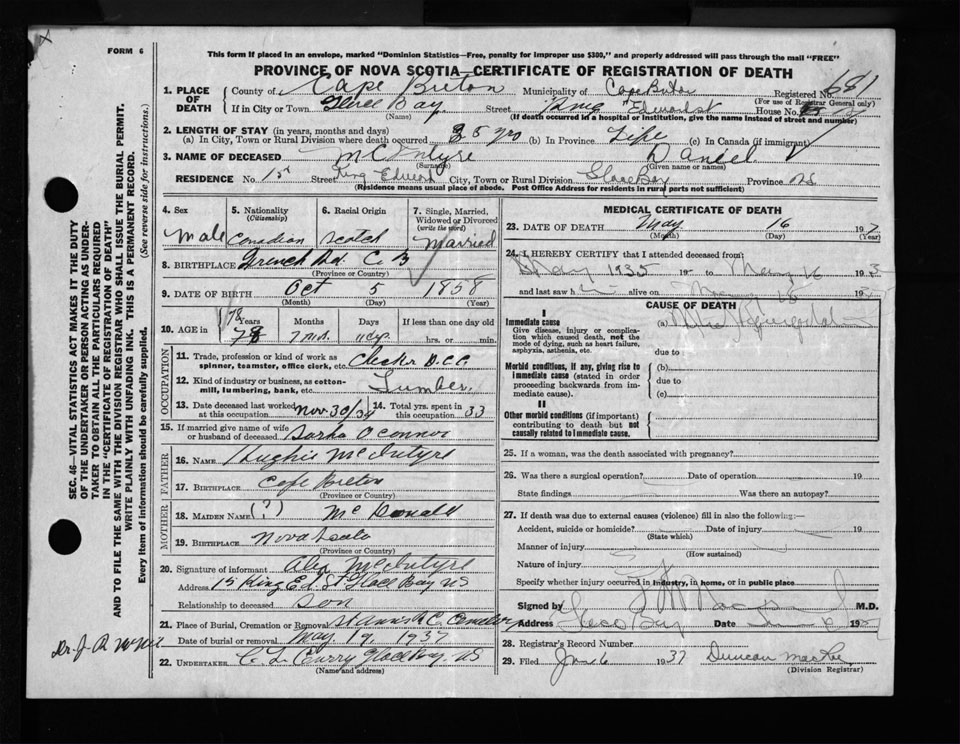 X
FORM 6
This form if placed in an envelope, marked "Dominion Statistics—Free, penalty for improper use $300," and properly addressed will pass through the mail "FREE"
PROVINCE OF NOVA SCOTIA—CERTIFICATE OF REGISTRATION OF DEATH
1. PLACE OF DEATH
County of Cape Breton Municipality of Cape Breton Registered No. 681
(For use of Registrar General only)
If in City or Town Glace Bay Street King Edward st House No.
(Name) (If death occurred in a hospital or institution, give the name instead of street and number)
2. LENGTH OF STAY (in years, months and days)
(a) In City, Town or Rural Division where death occurred 35 yrs (b) In Province Life (c) In Canada (if immigrant)
3. NAME OF DECEASED McIntyre Daniel
(Surname) (Given name or names)
RESIDENCE No. 15 Street King Edward City, Town or Rural Division Glace Bay Province NS
(Residence means usual place of abode. Post Office Address for residents in rural parts not sufficient)
4. Sex Male
5. Nationality (Citizenship) Canadian
6. Racial Origin Scotch
7. Single, Married, Widowed or Divorced (write the word) Married
8. BIRTHPLACE French Rd. C. B
(Province or Country)
9. DATE OF BIRTH Oct 5 1858
(Month) (Day) (Year)
10. AGE in Years 78 Months 7 Days 11 If less than one day
hrs. or min.
OCCUPATION
11. Trade, profession or kind of work as spinner, teamster, office clerk, etc. Checker D.C.C.
12. Kind of industry or business, as cotton-mill, lumbering, bank, etc. Lumber.
13. Date deceased last worked at this occupation Nov 30/34
14. Total yrs. spent in this occupation 33
15. If married give name of wife or husband of deceased Sarha O'Connor
FATHER
16. NAME Hughie McIntyre
17. BIRTHPLACE Cape Breton
(Province or Country)
MOTHER
18. MAIDEN NAME (?) McDonald
19. BIRTHPLACE Nova Scotia
(Province or Country)
20. Signature of informant Alex McIntyre
Address 15 King Ed St Glace Bay NS
Relationship to deceased son
21. Place of Burial, Cremation or Removal St Anns R C Cemetery
Date of burial or removal May 19, 1937
22. UNDERTAKER C. L. Curry Glace Bay NS
(Name and address)
MEDICAL CERTIFICATE OF DEATH
23. DATE OF DEATH May 16 1937
(Month) (Day) (Year)
24. I HEREBY CERTIFY that I attended deceased from:
May 1935 19 to May 16 193
and last saw h alive on 19
CAUSE OF DEATH
I
Immediate cause
Give disease, injury or complication which caused death, not the mode of dying, such as heart failure, asphyxia, asthenia, etc.
(a)
due to
Morbid conditions, if any, giving rise to immediate cause (stated in order proceeding backwards from immediate cause).
(b)
due to
(c)
II
Other morbid conditions (if important) contributing to death but not causally related to immediate cause.
25. If a woman, was the death associated with pregnancy?
26. Was there a surgical operation? Date of operation 19
State findings Was there an autopsy?
27. If death was due to external causes (violence) fill in also the following:—
Accident, suicide or homicide? Date of injury 19
(State which)
Manner of injury
(How sustained)
Nature of injury
Specify whether injury occurred in industry, in home, or in public place
Signed by M.D.
Address Glace Bay Date
28. Registrar's Record Number
29. Filed 6 1937 Duncan
(Division Registrar)
SEC. 46—VITAL STATISTICS ACT MAKES IT THE DUTY
OF THE UNDERTAKER OR PERSON ACTING AS UNDER-
TAKER TO OBTAIN ALL THE PARTICULARS REQUIRED
IN THE "CERTIFICATE OF REGISTRATION OF DEATH"
AND TO FILE THE SAME WITH THE DIVISION REGISTRAR WHO SHALL ISSUE THE BURIAL PERMIT.
WRITE PLAINLY WITH UNFADING INK. THIS IS A PERMANENT RECORD.
Every item of information should be carefully supplied. (See reverse side for instructions.)
Dr. J. R.